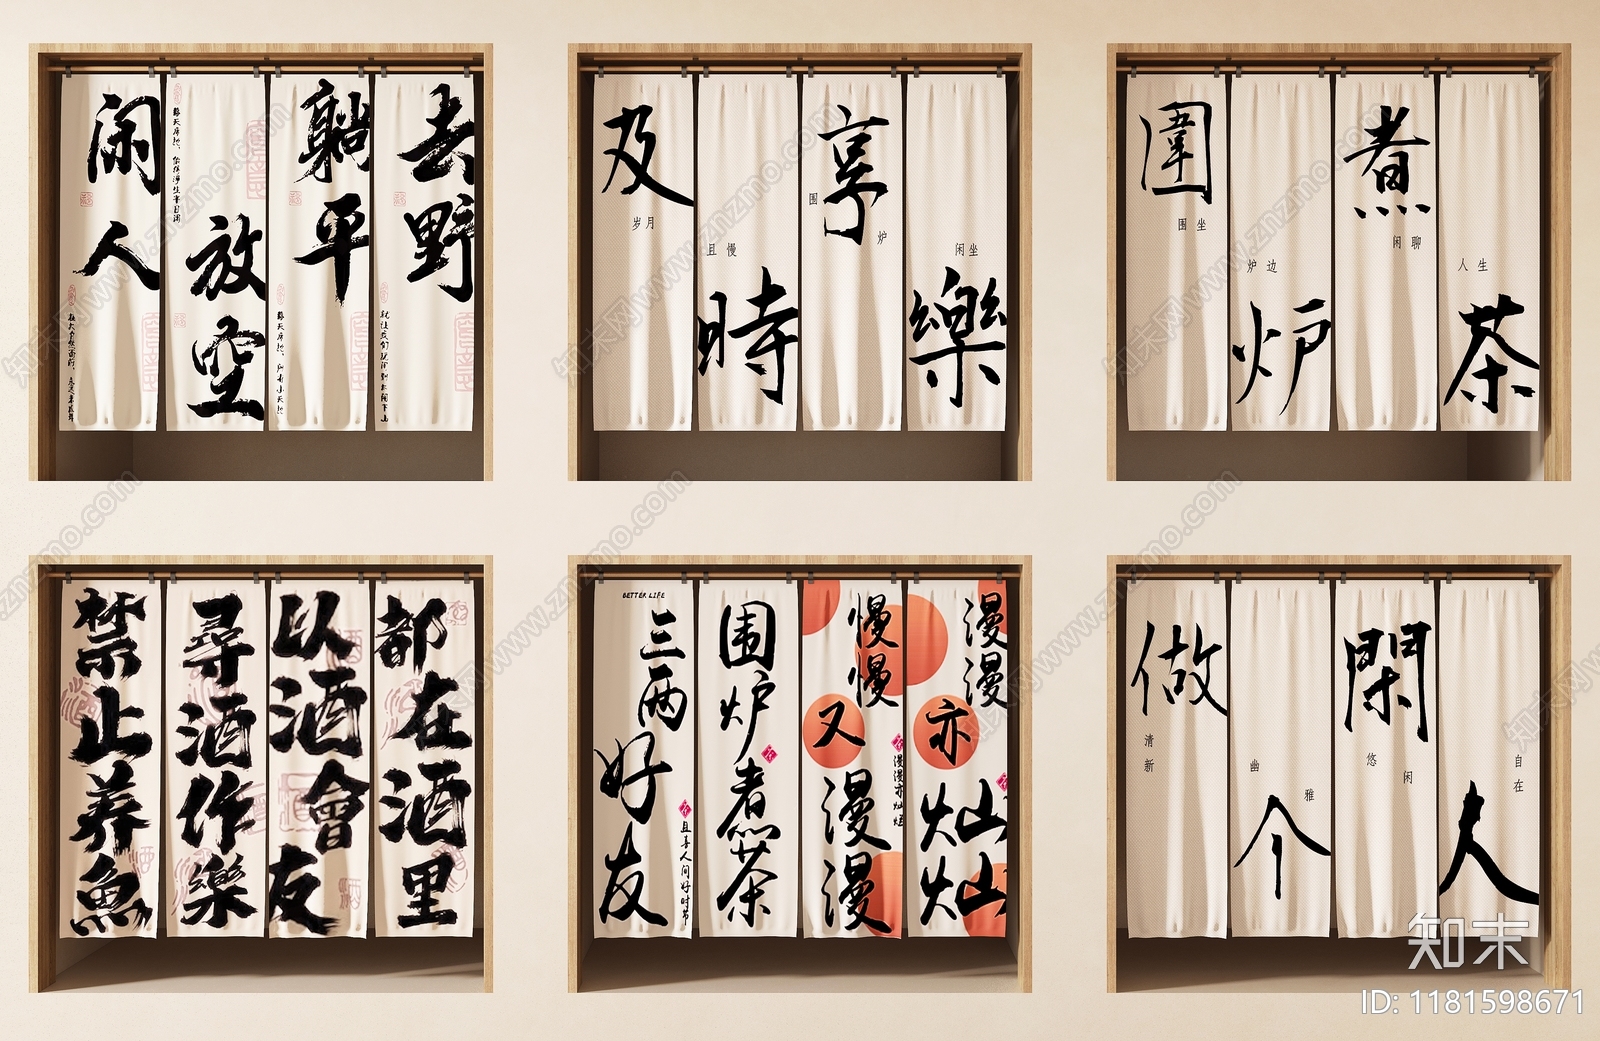 闲人
放空
躺平
去野
及
岁月
且慢
時
享
围
炉
闲坐
樂
圍
围坐
炉边
炉
煮
闲聊
人生
茶
禁止养魚
尋酒作樂
以酒會友
都在酒里
BETTER LIFE
三两好友
且喜人间好时节
围炉煮茶
慢慢又漫漫
漫漫亦灿灿
漫漫亦灿灿
做
清新
幽
雅
个
閑
悠
闲
自在
人
知末
ID: 1181598671
知末网www.znzmo.com